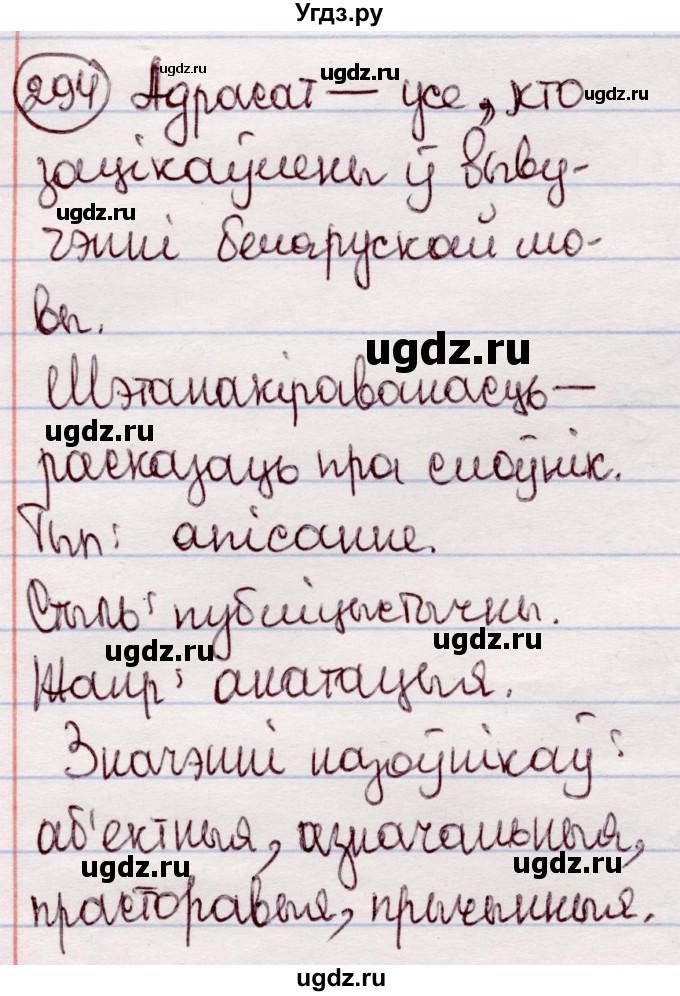 Угдз.ру
294 Адрасат — усе, хто
зацікаўлены ў выву-
чэнні беларускай мо-
вы.
Мэтанакіраванасць —
расказаць пра слоўнік.
Тып: апісанне.
Стыль: публіцыстычны.
Жанр: анатацыя.
Значэнні назоўнікаў:
аб'ектныя, азначальныя,
прасторавыя, прычынныя.
ugdz.ru
ugdz.ru
ugdz.ru
ugdz.ru
ugdz.ru
ugdz.ru
ugdz.ru
ugdz.ru
ugdz.ru
ugdz.ru
ugdz.ru
ugdz.ru
ugdz.ru